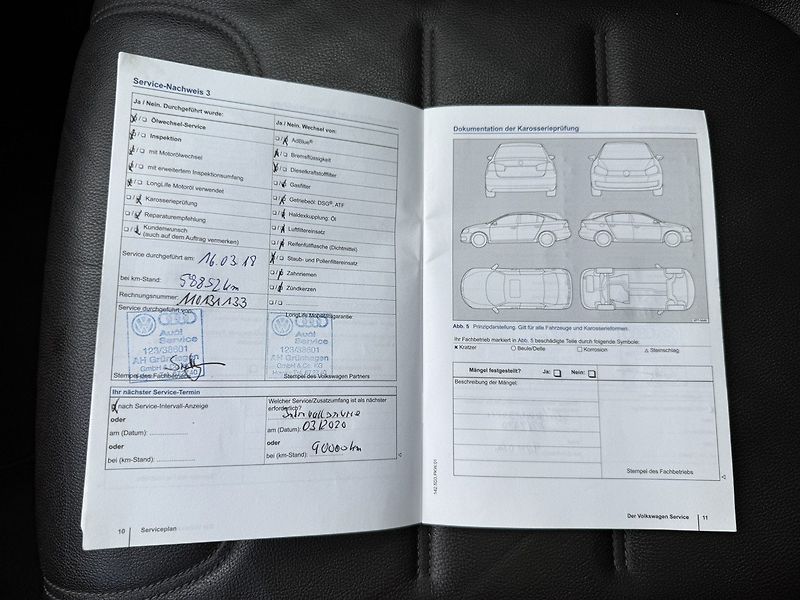 Service-Nachweis 3
Ja / Nein. Durchgeführt wurde:
Ölwechsel-Service
Inspektion
mit Motorölwechsel
mit erweitertem Inspektionsumfang
LongLife Motoröl verwendet
Karosserieprüfung
Reparaturempfehlung
Kundenwunsch
(auch auf dem Auftrag vermerken)
Service durchgeführt am: 16.03.18
bei km-Stand: 58852 km
Rechnungsnummer:
Service durchgeführt von:
Audi
Service
123/38601
AH Grünhagen
GmbH & Co. KG
Stempel des Fachbetriebs
Ja / Nein. Wechsel von:
AdBlue®
Bremsflüssigkeit
Dieselkraftstofffilter
Gasfilter
Getriebeöl: DSG®, ATF
Haldexkupplung: Öl
Luftfiltereinsatz
Reifenfüllflasche (Dichtmittel)
Staub- und Pollenfiltereinsatz
Zahnriemen
Zündkerzen
LongLife Mobilitätsgarantie:
Audi
Service
123/38601
AH Grünhagen
GmbH & Co. KG
Stempel des Volkswagen Partners
Ihr nächster Service-Termin
nach Service-Intervall-Anzeige
oder
am (Datum):
oder
bei (km-Stand):
Welcher Service/Zusatzumfang ist als nächster
erforderlich?
am (Datum): 03.2020
oder
bei (km-Stand): 90000 km
10 Serviceplan
Dokumentation der Karosserieprüfung
Abb. 5 Prinzipdarstellung. Gilt für alle Fahrzeuge und Karosserieformen.
Ihr Fachbetrieb markiert in Abb. 5 beschädigte Teile durch folgende Symbole:
× Kratzer ○ Beule/Delle □ Korrosion △ Steinschlag
Mängel festgestellt? Ja: Nein:
Beschreibung der Mängel:
Stempel des Fachbetriebs
Der Volkswagen Service 11